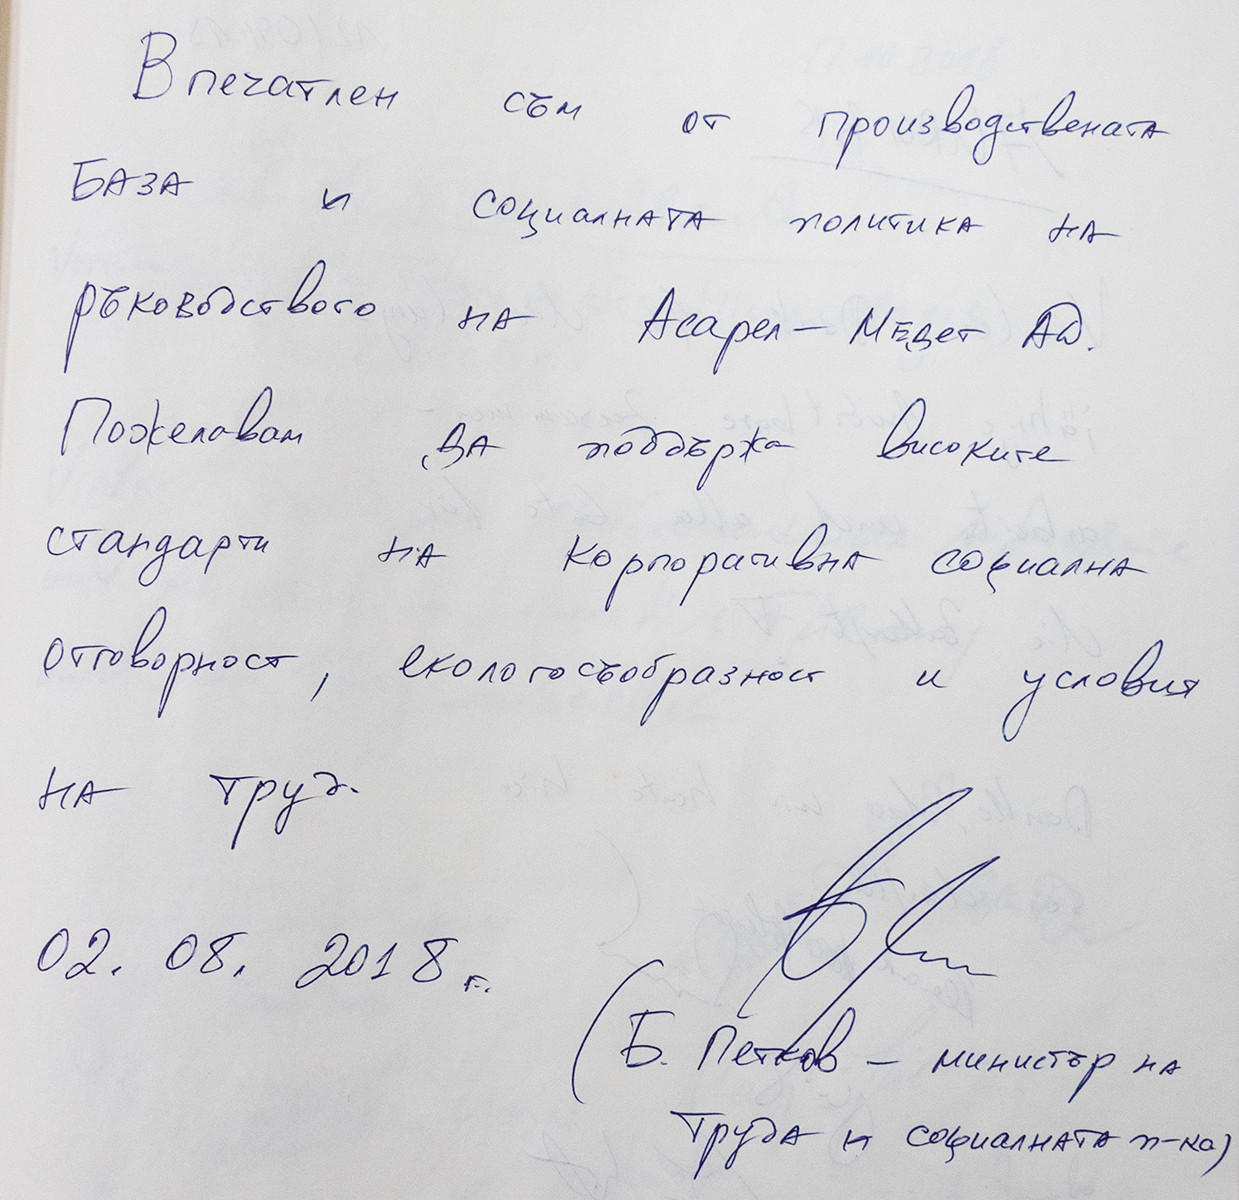 Впечатлен съм от производствената
база и социалната политика на
ръководството на Асарел – Медет АД.
Пожелавам да поддържа високите
стандарти на корпоративна социална
отговорност, екологосъобразност и условия
на труд.
02. 08. 2018 г.
(Б. Петков – министър на
труда и социалната п-ка)